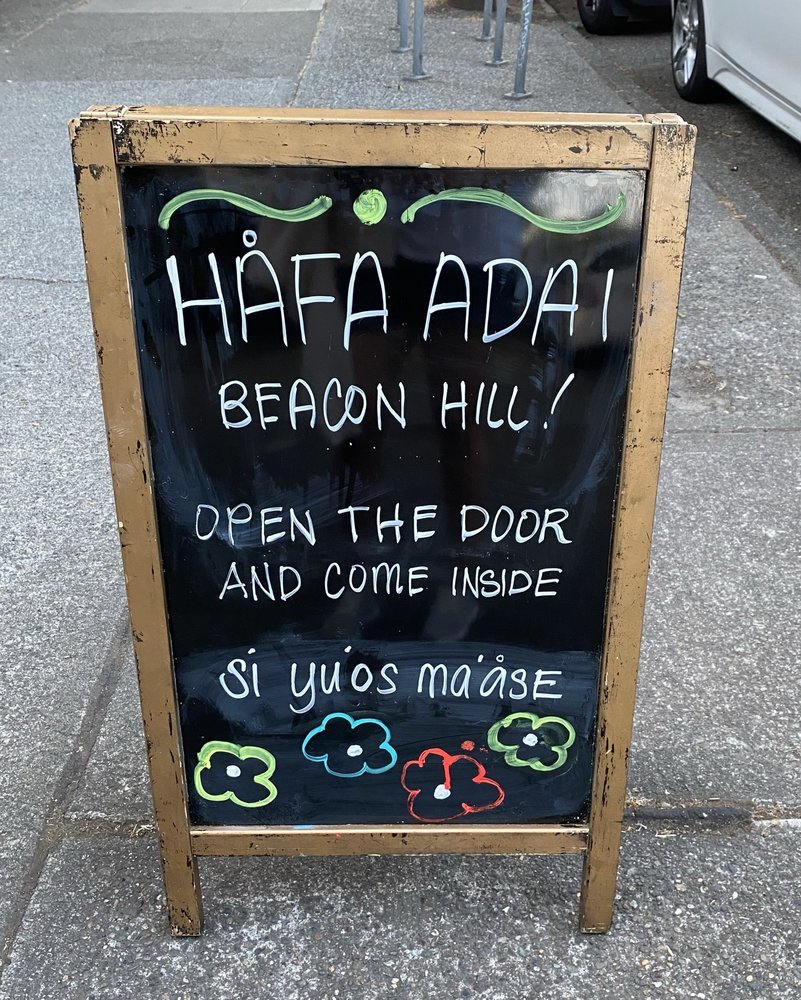 HÅFA ADAI
BEACON HILL!
OPEN THE DOOR
AND COME INSIDE
Si yu'os ma'åsE